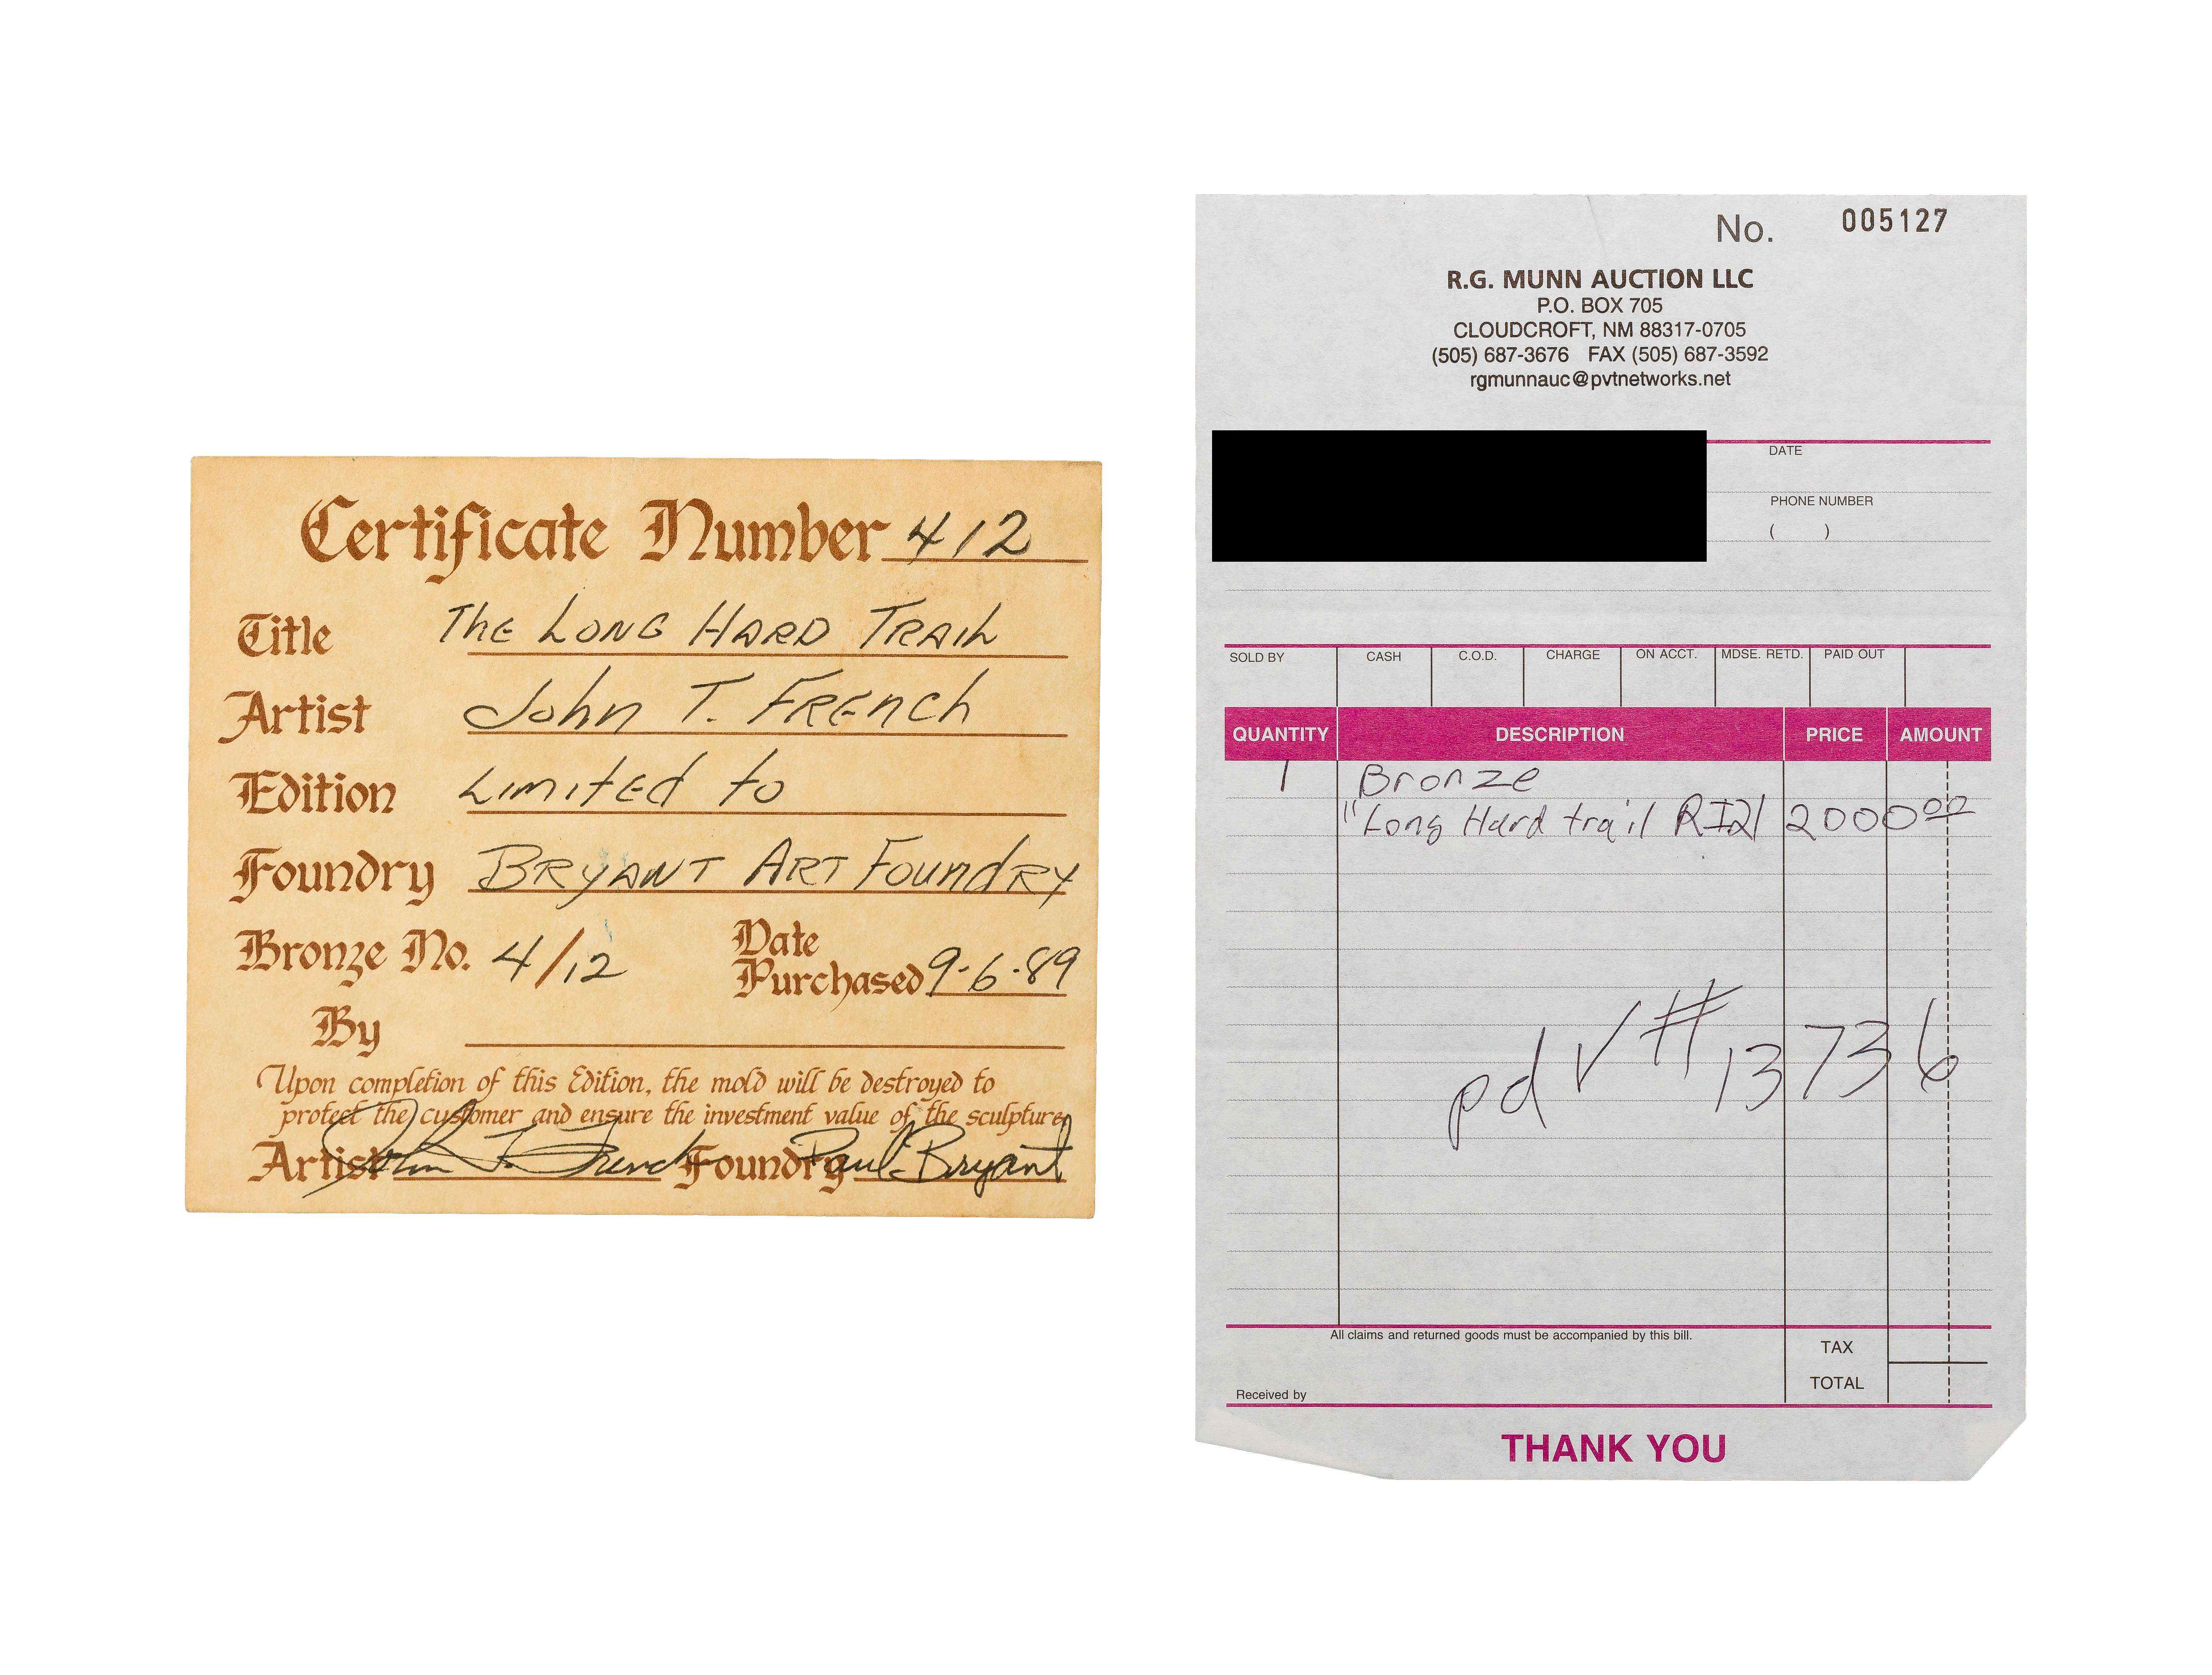 Certificate Number 412
Title The Long Hard Trail
Artist John T. French
Edition Limited to
Foundry Bryant Art Foundry
Bronze No. 4/12 Date Purchased 9-6-89
By
Upon completion of this Edition, the mold will be destroyed to
protect the customer and ensure the investment value of the sculpture.
Artist John T. French Foundry Paul Bryant
No. 005127
R.G. MUNN AUCTION LLC
P.O. BOX 705
CLOUDCROFT, NM 88317-0705
(505) 687-3676 FAX (505) 687-3592
rgmunnauc@pvtnetworks.net
DATE
PHONE NUMBER
( )
SOLD BY CASH C.O.D. CHARGE ON ACCT. MDSE. RETD. PAID OUT
QUANTITY DESCRIPTION PRICE AMOUNT
1 Bronze
"Long Hard trail 2000 00
pd ✓ # 13736
All claims and returned goods must be accompanied by this bill.
TAX
TOTAL
Received by
THANK YOU